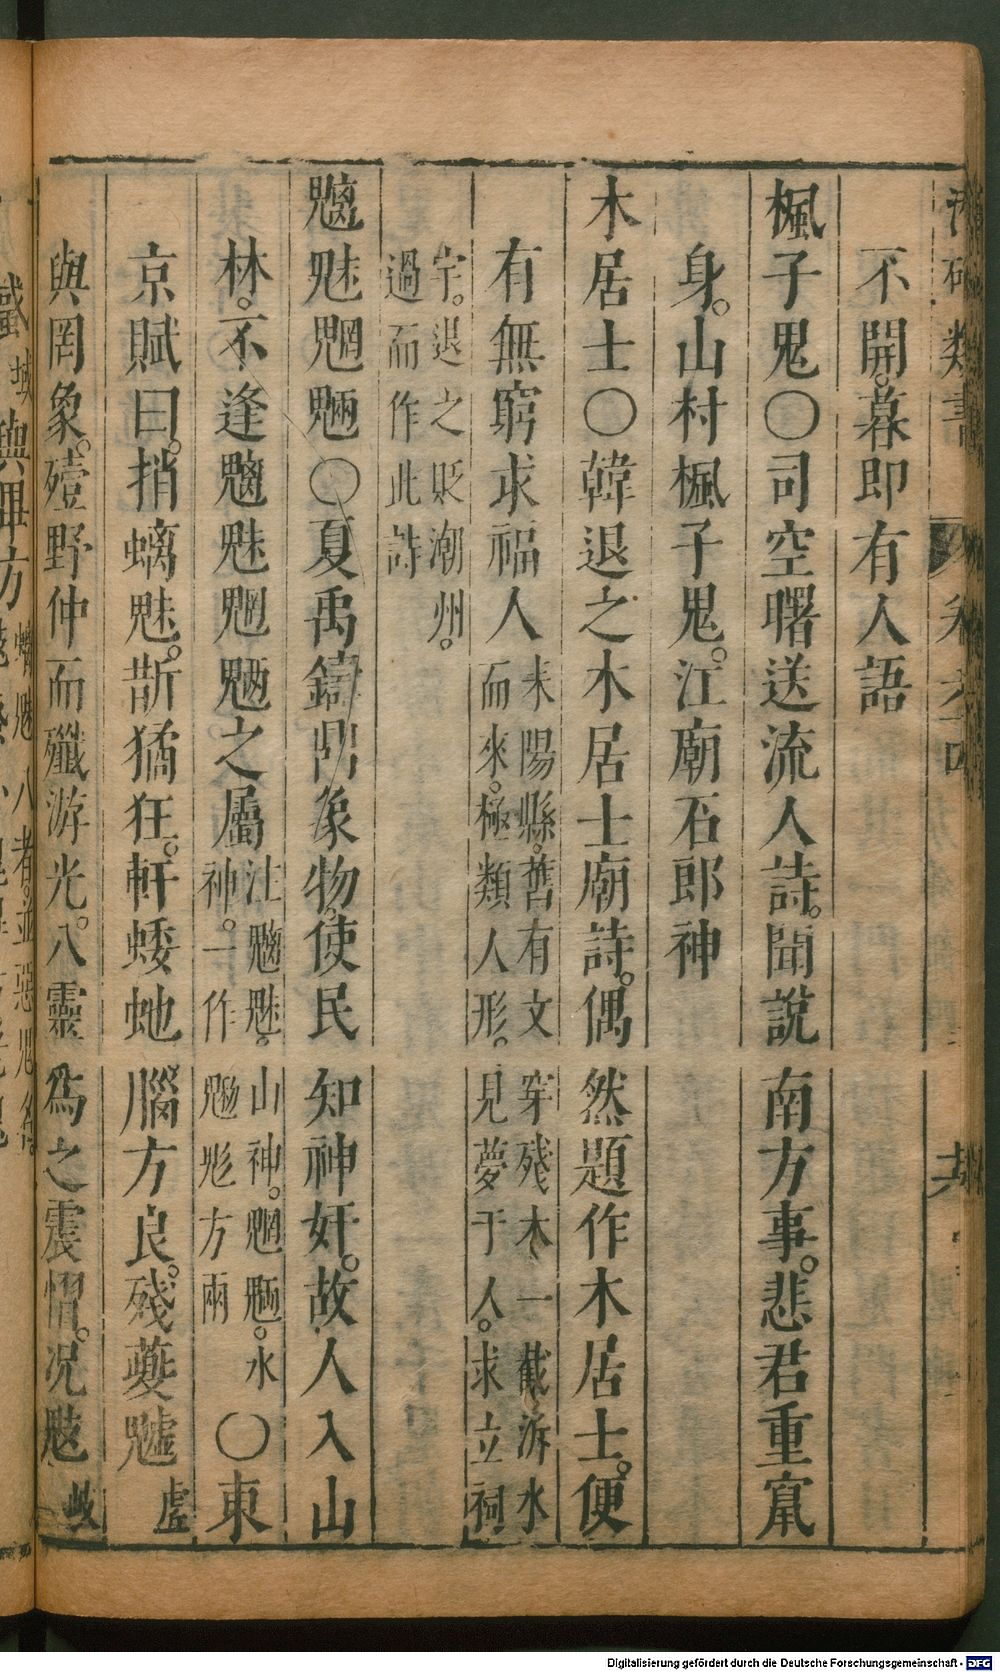 不開。暮即有人語
楓子鬼○司空曙送流人詩。聞說南方事。悲君重竄
身。山村楓子鬼。江廟石郎神
木居士○韓退之木居士廟詩。偶然題作木居士。便
有無窮求福人耒陽縣。舊有文穿殘木一截泝水
而來。極類人形。見夢于人。求立祠
宇。退之貶潮州。
過而作此詩
魑魅魍魎○夏禹鑄鼎象物。使民知神奸。故人入山
林。不逢魑魅魍魎之屬注魑魅。山神。魍魎。水
神。一作魎彪方兩○東
京賦曰。捎螭魅。斮獝狂。軒蜲虵腦方良。殘夔魖虛
與罔象。殪野仲而殲游光。八靈為之震慴。况鬾蚑
蜮域與畢方
魑魅八者。並惡鬼名。
Digitalisierung gefördert durch die Deutsche Forschungsgemeinschaft - DFG